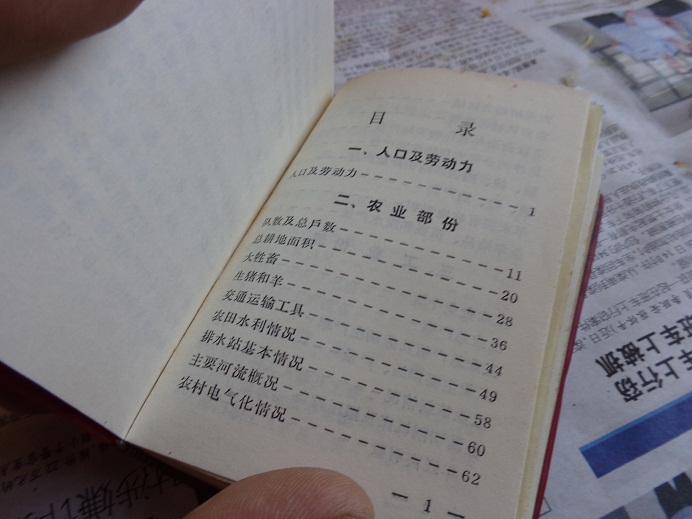 目 录
一、人口及劳动力
人口及劳动力 1
二、农业部份
队数及总戶数 11
总耕地面积 20
大牲畜 28
生猪和羊 36
交通运输工具 44
农田水利情况 49
排水站基本情况 58
主要河流概况 60
农村电气化情况 62
— 1 —
车上行窃
车上被抓